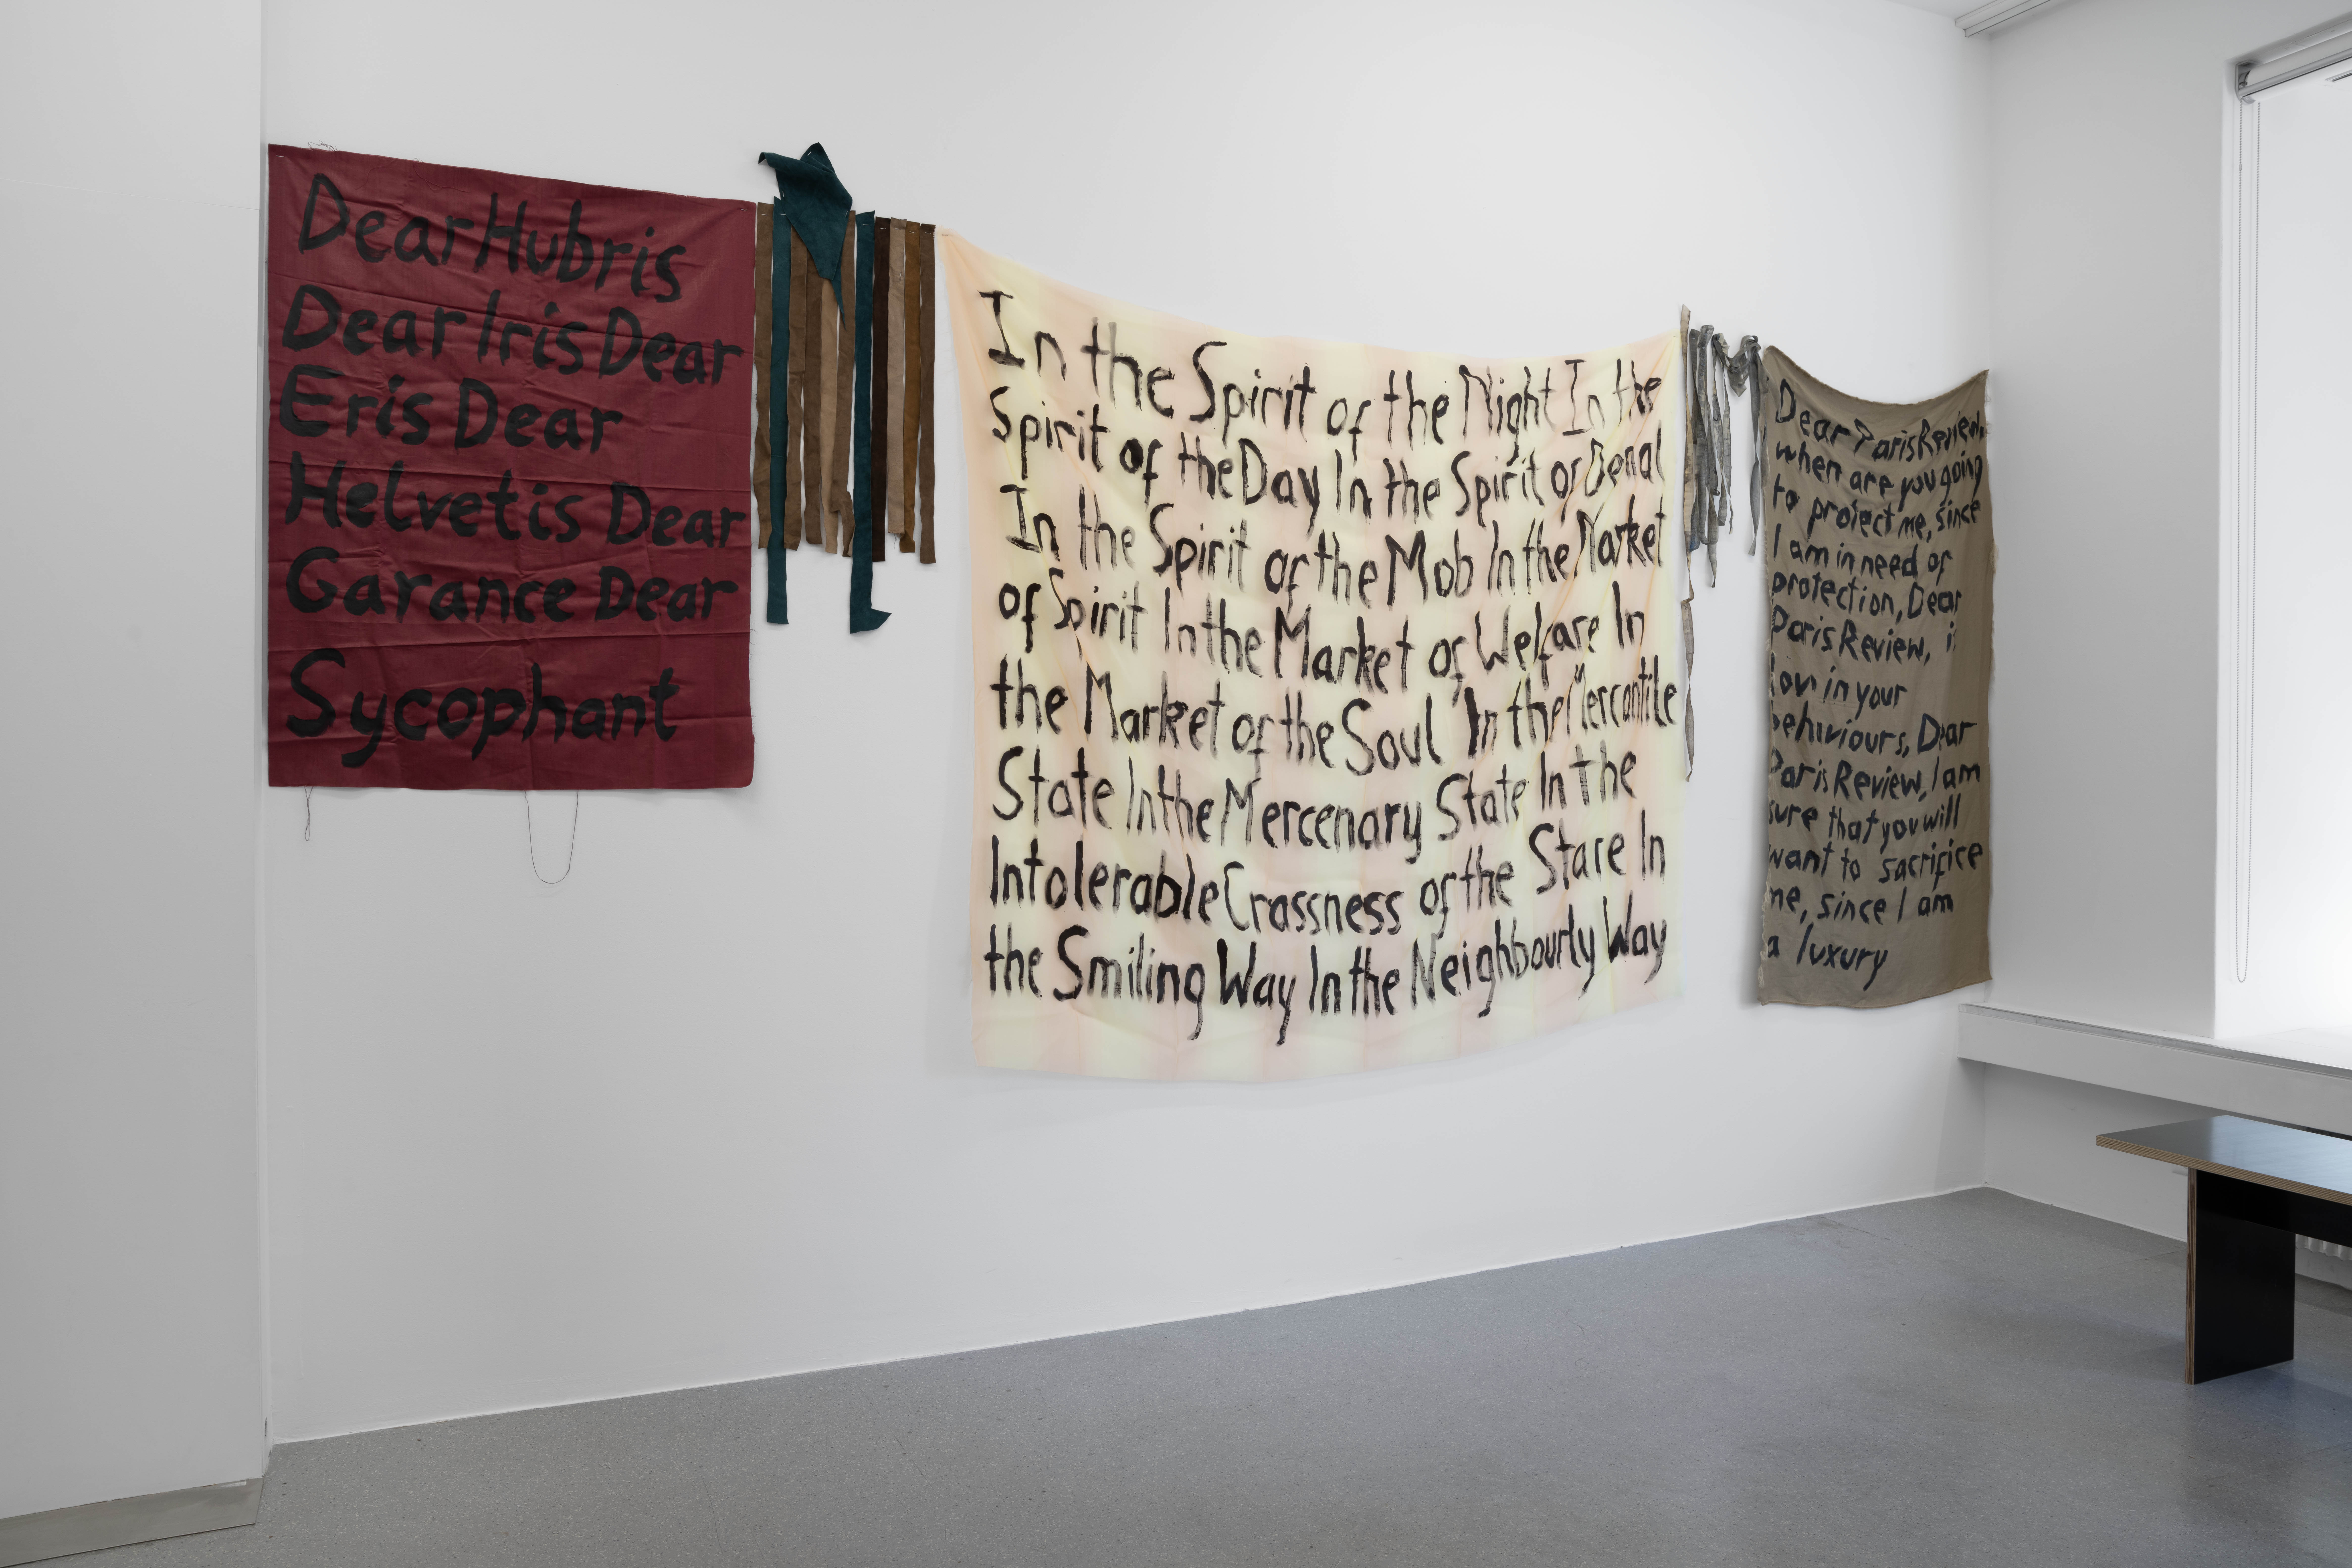 Dear Hubris
Dear Iris Dear
Eris Dear
Helvetis Dear
Garance Dear
Sycophant
In the Spirit of the Night In the
Spirit of the Day In the Spirit of
In the Spirit of the Mob In the Market
of Spirit In the Market of Welfare In
the Market of the Soul In the Mercantile
State In the Mercenary State In the
Intolerable Crassness of the Stare In
the Smiling Way In the Neighbourly Way
Dear Paris Review,
when are you going
to protect me, since
I am in need of
protection, Dear
Paris Review, i
in your
behaviours, Dear
Paris Review, I am
sure that you will
want to sacrifice
me, since I am
a luxury